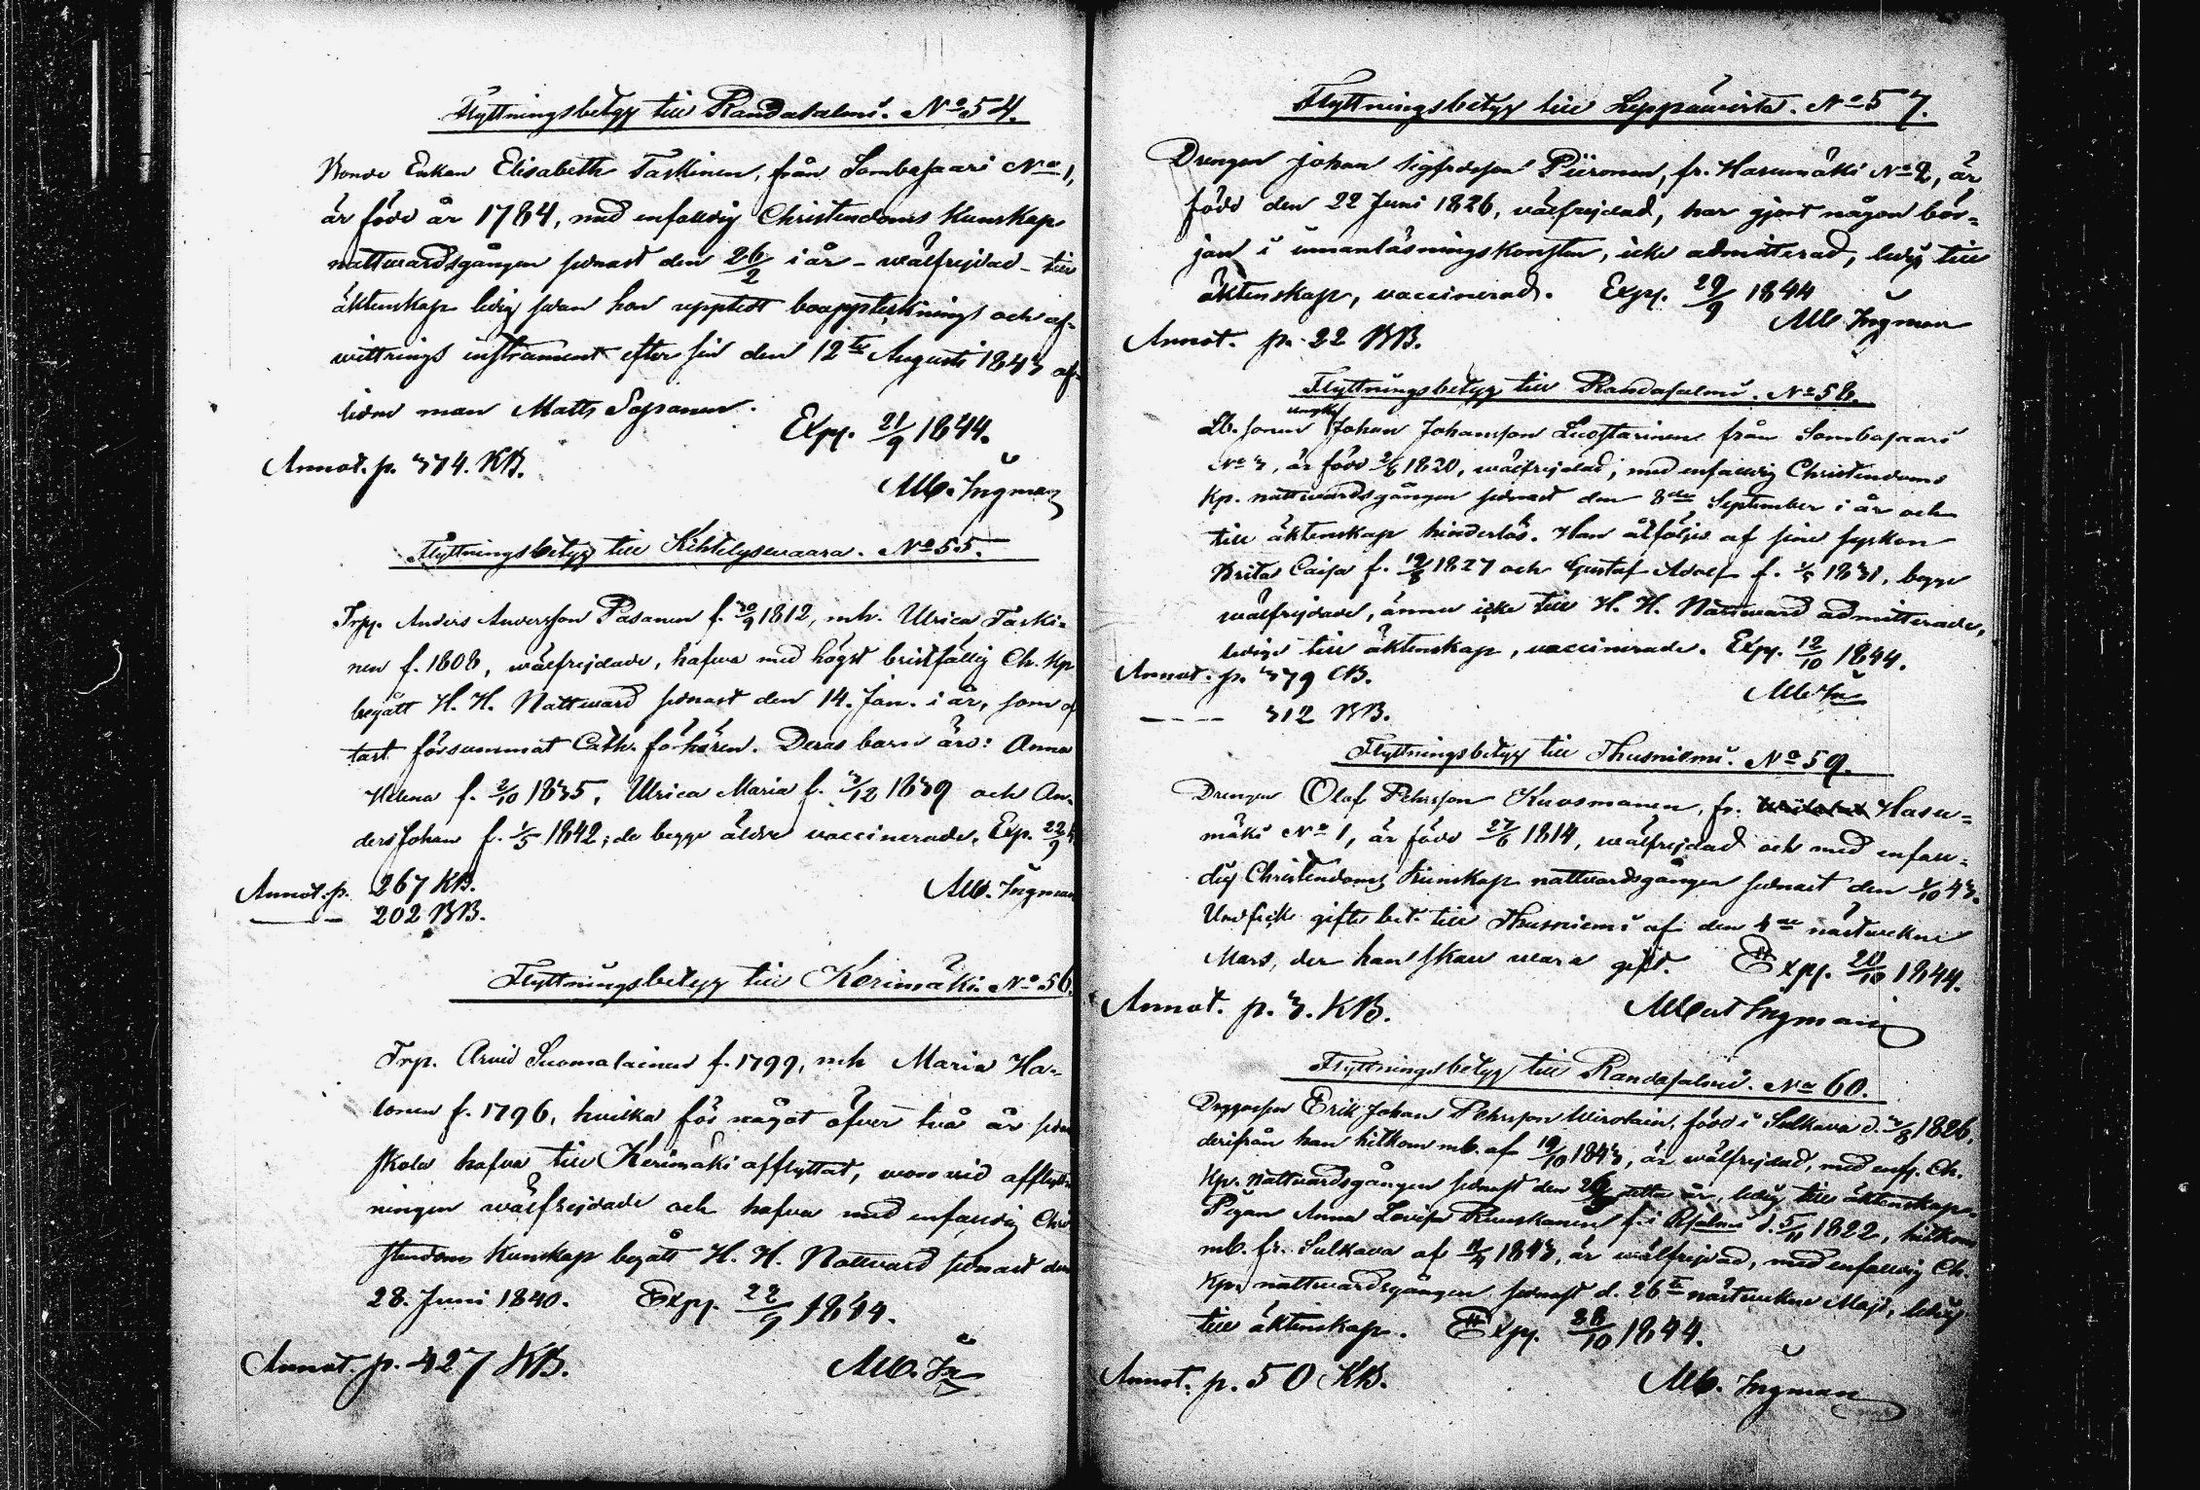 Flyttningsbetyg till Randasalmi. No 54.
Bonde Enkan Elisabeth Taskinen, från Sombasaari No 1,
är född år 1784, med enfaldig Christendoms Kunskap
nattvardsgången sednast den 26/2 i år - wälfrejdad - till
äktenskap ledig sedan hon upptedt bouppteknings och af-
wittrings instrument efter sin den 12te Augusti 1843 af-
lidne man Matts Sopanen.
Exp. 21/9 1844.
Annot. p. 374. KB.
Alb. Ingman
Flyttningsbetyg till Kihtelyswaara. No 55.
Trp. Anders Andersson Pasanen f. 30/9 1812, mh. Ulrica Taski-
nen f. 1808, wälfrejdade, hafwa med högst bristfällig Ch. Kp
begått H. H. Nattward sednast den 14. Jan. i år, som of
tast försummat Cath. förhören. Deras barn äro: Anna
Helena f. 2/10 1835, Ulrica Maria f. 3/12 1839 och An-
ders Johan f. 1/5 1842; de begge äldre vaccinerade. Exp. 22/9
Annot. p. 267 KB.
Alb. Ingman
—— — 202 BB.
Flyttningsbetyg till Kerimäki. No 56.
Trp. Arvid Suomalainen f. 1799, mh Maria Ha-
lonen f. 1796, hvilka för något öfver två år sedan
skola hafva till Kerimäki afflyttat, woro vid afflytt
ningen wälfrejdade och hafva med enfaldig Chri
stendoms Kunskap begått H. H. Nattvard sednast den
28. Juni 1840. Exp. 22/9 1844.
Annot. p. 427 KB.
Alb. In
Flyttningsbetyg till Leppäwirta. No 57.
Drengen Johan Sigfredsson Piironen, fr. Hasumäki No 2, är
född den 22 Juni 1826, välfrejdad, har gjort någon bör-
jan i innanläsningskonsten, icke admitterad, ledig till
äktenskap, vaccinerad. Exp. 29/9 1844
Alb Ingman
Annot. p. 22 BB.
Flyttningsbetyg till Randasalmi. No 58.
Lb. sonen ungk. Johan Johansson Luostarinen från Sombasaari
No 3, är född 1820, wälfrejdad, med enfaldig Christendoms
Kp. nattwardsgången sednast den 8de September i år och
till äktenskap hinderlös. Han åtföljes af sina syskon
Brita Caisa f. 1827 och Gustaf Adolf f. 1831, begge
wälfrejdade, ännu icke till H. H. Nattward admitterade,
ledige till äktenskap, vaccinerade. Exp. 12/10 1844.
Annot. p. 379 KB.
Alb In
—— — 312 BB.
Flyttningsbetyg till Thusniemi. No 59.
Drengen Olof Pehrsson Kuosmanen, fr. Hasu-
mäki No 1, är född 27/6 1814, wälfrejdad och med enfal-
dig Christendoms Kunskap nattvardsgången sednast den 1/10 43.
Undfick gifte bet. till Thusniemi af den 4de nästwekne
Mars, der han skall wara gift. Exp. 20/10 1844.
Annot. p. 3. KB.
Albert Ingman
Flyttningsbetyg till Randasalmi. No 60.
Erik Johan Pehrsson Wirolain, född i Sulkava d. 3/8 1826,
derifrån han hitkom mb. af 19/10 1843, är wälfrejdad, med enf. Ch.
Kp. Nattvardsgången sednast den detta år, ledig till äktenskap.
Pigan Anna Lovisa Ruuskanen f. i Rsalmi d. 5/11 1822, hitkom
mb. fr. Sulkava af 1843, är wälfrejdad, med enfaldig Ch.
Kp. nattwardsgången sednast d. 26te nästwekne Maji, ledig
till äktenskap. Exp. 28/10 1844.
Annot. p. 50 KB.
Alb. Ingman